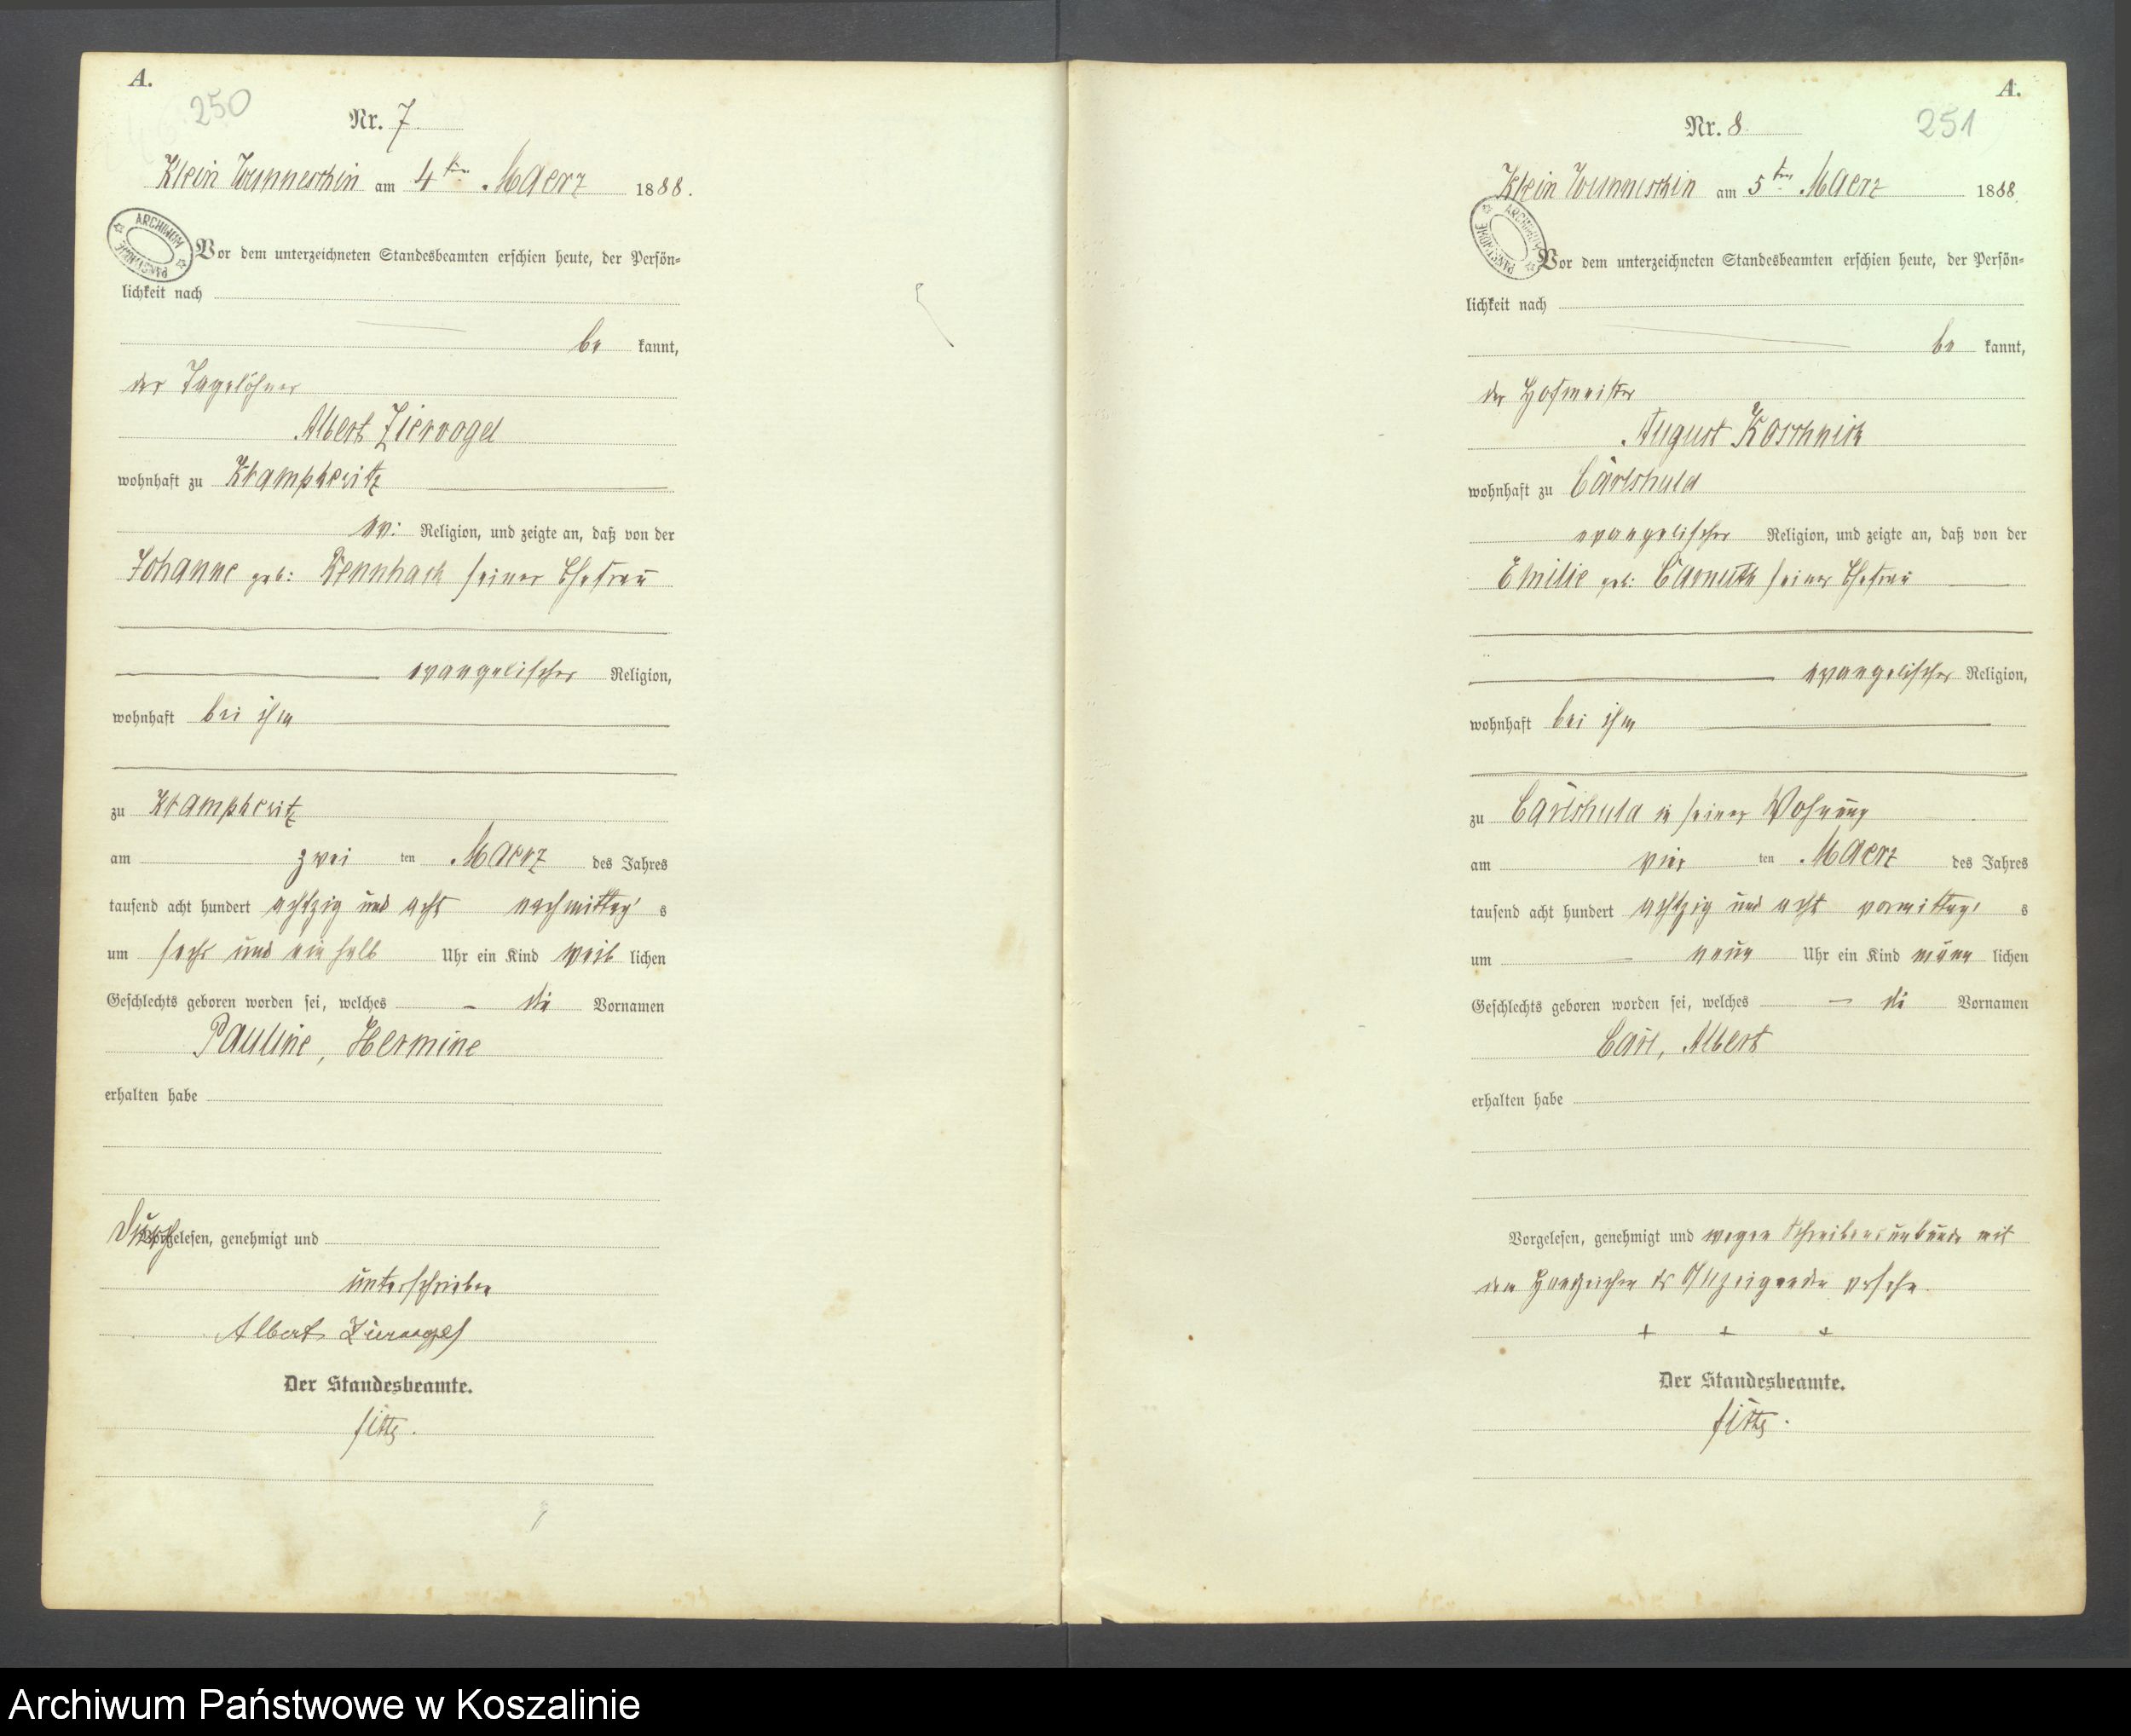 A.
250
Nr. 7
Klein Wunneschin am 4ten Maerz 1888.
ARCHIWUM PAŃSTWOWE
Vor dem unterzeichneten Standesbeamten erschien heute, der Persön-
lichkeit nach
be kannt,
der Tagelöhner
Albert Ziervogel
wohnhaft zu Krampkewitz
ev: Religion, und zeigte an, daß von der
Johanne geb: Rennhack seiner Ehefrau
evangelischer Religion,
wohnhaft bei ihm
zu Krampkewitz
am zwei ten Maerz des Jahres
tausend acht hundert achtzig und acht nachmittag s
um sechs und ein halb Uhr ein Kind weib lichen
Geschlechts geboren worden sei, welches die Vornamen
Pauline, Hermine
erhalten habe
Durchgelesen, genehmigt und
unterschrieben
Albert Ziervogel
Der Standesbeamte.
A.
Nr. 8
251
Klein Wunneschin am 5ten Maerz 1888.
ARCHIWUM PAŃSTWOWE
Vor dem unterzeichneten Standesbeamten erschien heute, der Persön-
lichkeit nach
be kannt,
der Hofmeister
August Koschnick
wohnhaft zu Carlshula
evangelischer Religion, und zeigte an, daß von der
Emilie geb: Carnuth seiner Ehefrau
evangelischer Religion,
wohnhaft bei ihm
zu Carlshula in seiner Wohnung
am vier ten Maerz des Jahres
tausend acht hundert achtzig und acht vormittag s
um neun Uhr ein Kind männ lichen
Geschlechts geboren worden sei, welches die Vornamen
Carl, Albert
erhalten habe
Vorgelesen, genehmigt und wegen Schreibensunkunde mit
den Handzeichen des Anzeigenden versehn
+ + +
Der Standesbeamte.
Archiwum Państwowe w Koszalinie